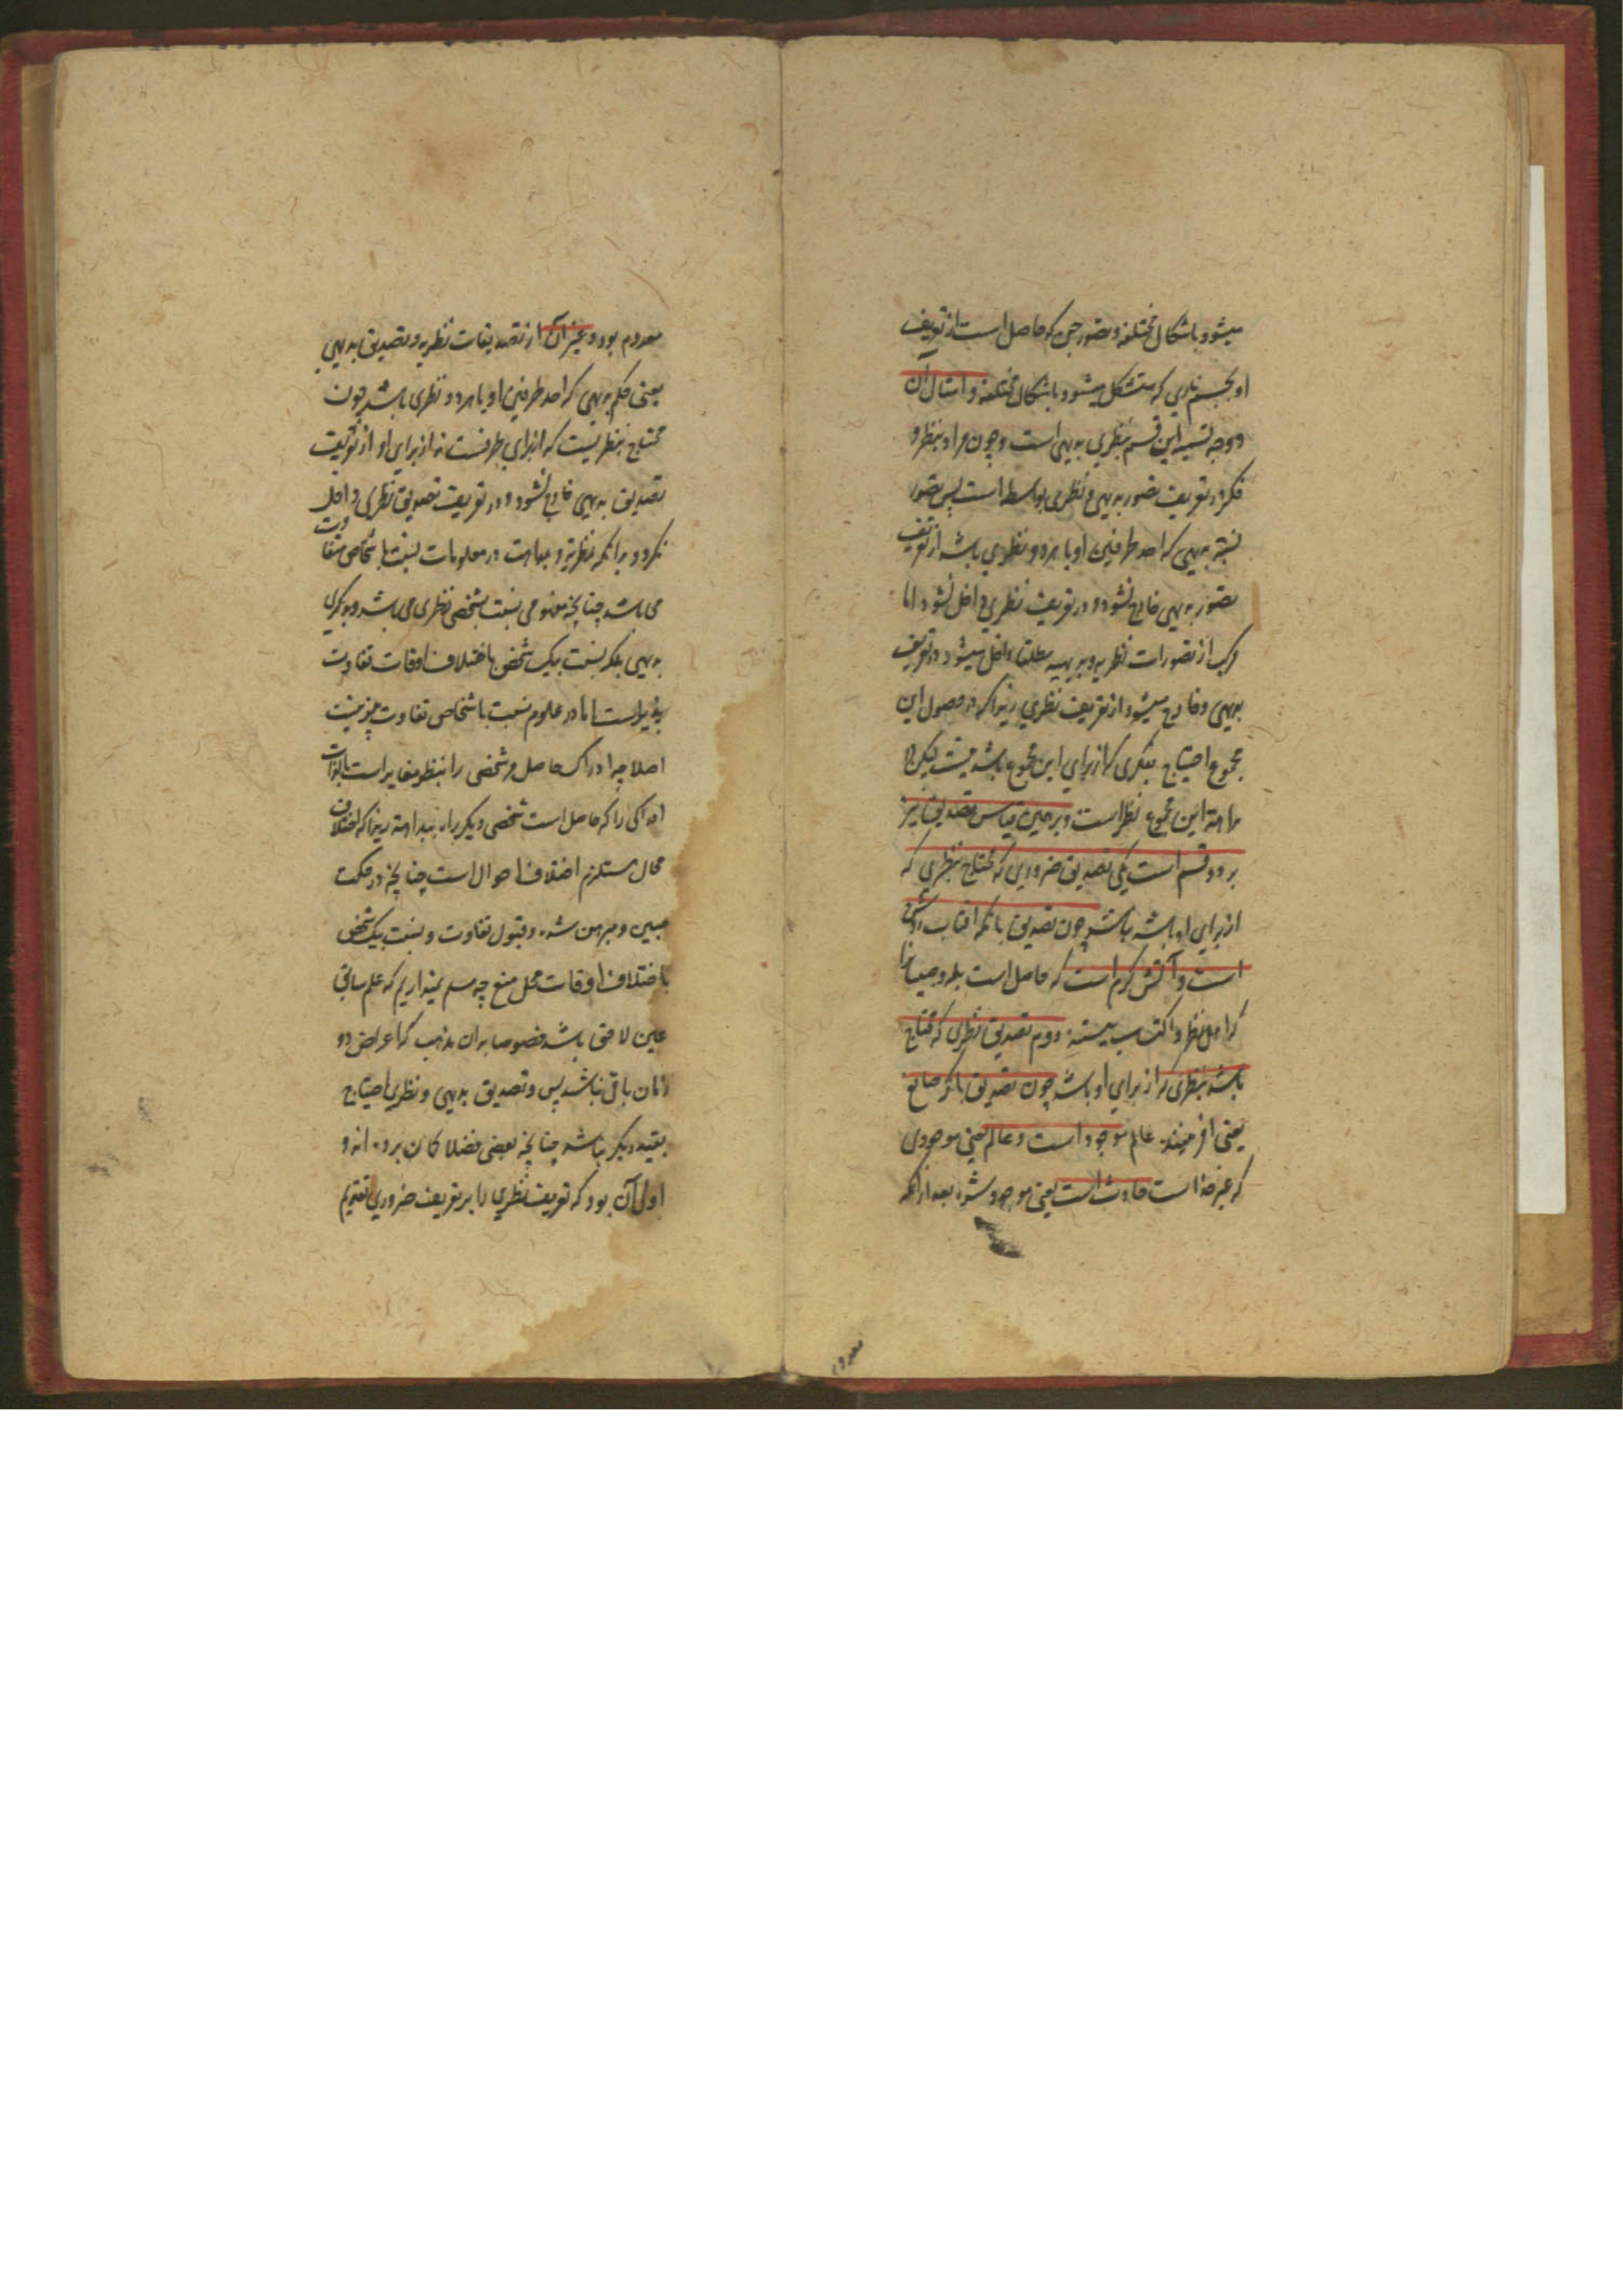 میشود باشکال مختلفه و تصور جن که حاصل است از تعریف
او بجسم ناری که متشکل میشود باشکال مختلفه و امثال آن
و وجه تسمیه این قسم بنظری بدیهی است و چون مراد بنظر و
فکر در تعریف تصور بدیهی و نظری بواسطه است پس تصور
نسبة بدیهی که احد طرفین او یا هر دو نظری باشد از تعریف
تصور بدیهی خارج نشود و در تعریف نظری داخل نشود اما
مرکب از تصورات نظریه و بدیهیه مطلقا داخل میشود در تعریف
بدیهی و خارج میشود از تعریف نظری زیرا که در حصول این
مجموع احتیاج بفکری که از برای این مجموع باشد نیست لیکن
بداهة این مجموع نظر است و برهمین قیاس تصدیق نیز
بر دو قسم است یکی تصدیق ضروری که محتاج بنظری که
از برای او باشد نباشد چون تصدیق بانکه افتاب روشن
است و آتش گرم است که حاصل است بله و صبیان را
که اهل نظر و اکتساب نیستند دوم تصدیق نظری که محتاج
باشد بنظری که از برای او باشد چون تصدیق بانکه صانع
یعنی افریننده عالم موجود است و عالم یعنی موجودی
که غیر خدا است حادث است یعنی موجود شده بعد از انکه
معدوم
معدوم بود و غیر آن از تصدیقات نظریه و تصدیق بدیهی
یعنی حکم بدیهی که احد طرفین او یا هر دو نظری باشد چون
محتاج بنظریست که از برای طرفست نه از برای او از تعریف
تصدیق بدیهی خارج نشود و در تعریف تصدیق نظری داخل
نکردد بدانکه نظریة و بداهت در معلومات نسبت باشخاص متفاوت
می باشد چنانچه مفهومی نسبت بشخصی نظری می باشد و بدیکری
بدیهی بلکه نسبت بیک شخص باختلاف اوقات تفاوت
پذیر است اما در علوم نسبت باشخاص تفاوت پذیر نیست
اصلا چه ادراک حاصل مر شخصی را بنظر مغایر است بالذات
ادراکی را که حاصل است شخصی دیکر را ببداهة زیرا که اختلاف
محال مستلزم اختلاف احوال است چنانچه در حکمت
مبین و مبرهن شده و قبول تفاوت و نسبت بیک شخص
باختلاف اوقات محل منع چه مسلم نمیداریم که علم سابق
عین لاحق باشد خصوصا بران مذهب که اعراض دو
زمان باقی نباشد پس و تصدیق بدیهی و نظری احتیاج
بقید دیکر نباشد چنانچه بعضی فضلا کمان برده اند و
اولی آن بود که تعریف نظری را بر تعریف ضروری تقدیم